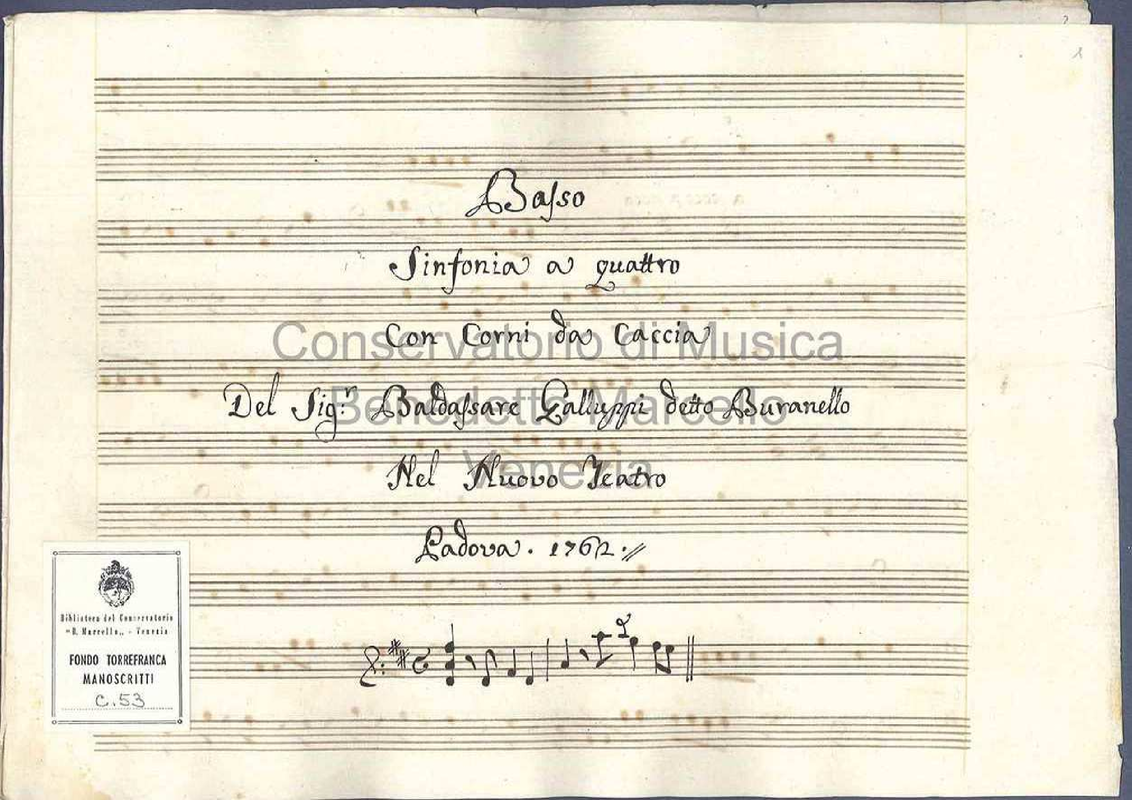 2
1
Basso
Sinfonia a quattro
Con Corni da Caccia
Conservatorio di Musica
Del Sig.r Baldassare Galluppi detto Buranello
Benedetto Marcello
Nel Nuovo Teatro
Venezia
Padova. 1762.//
Biblioteca del Conservatorio
"B. Marcello„ - Venezia
FONDO TORREFRANCA
MANOSCRITTI
C.53